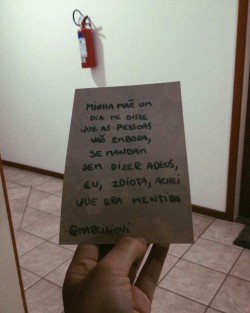 MINHA MÃE UM
DIA ME DISSE
QUE AS PESSOAS
VÃO EMBORA,
SE MANDAM
SEM DIZER ADEUS,
EU, IDIOTA, ACHEI
QUE ERA MENTIRA